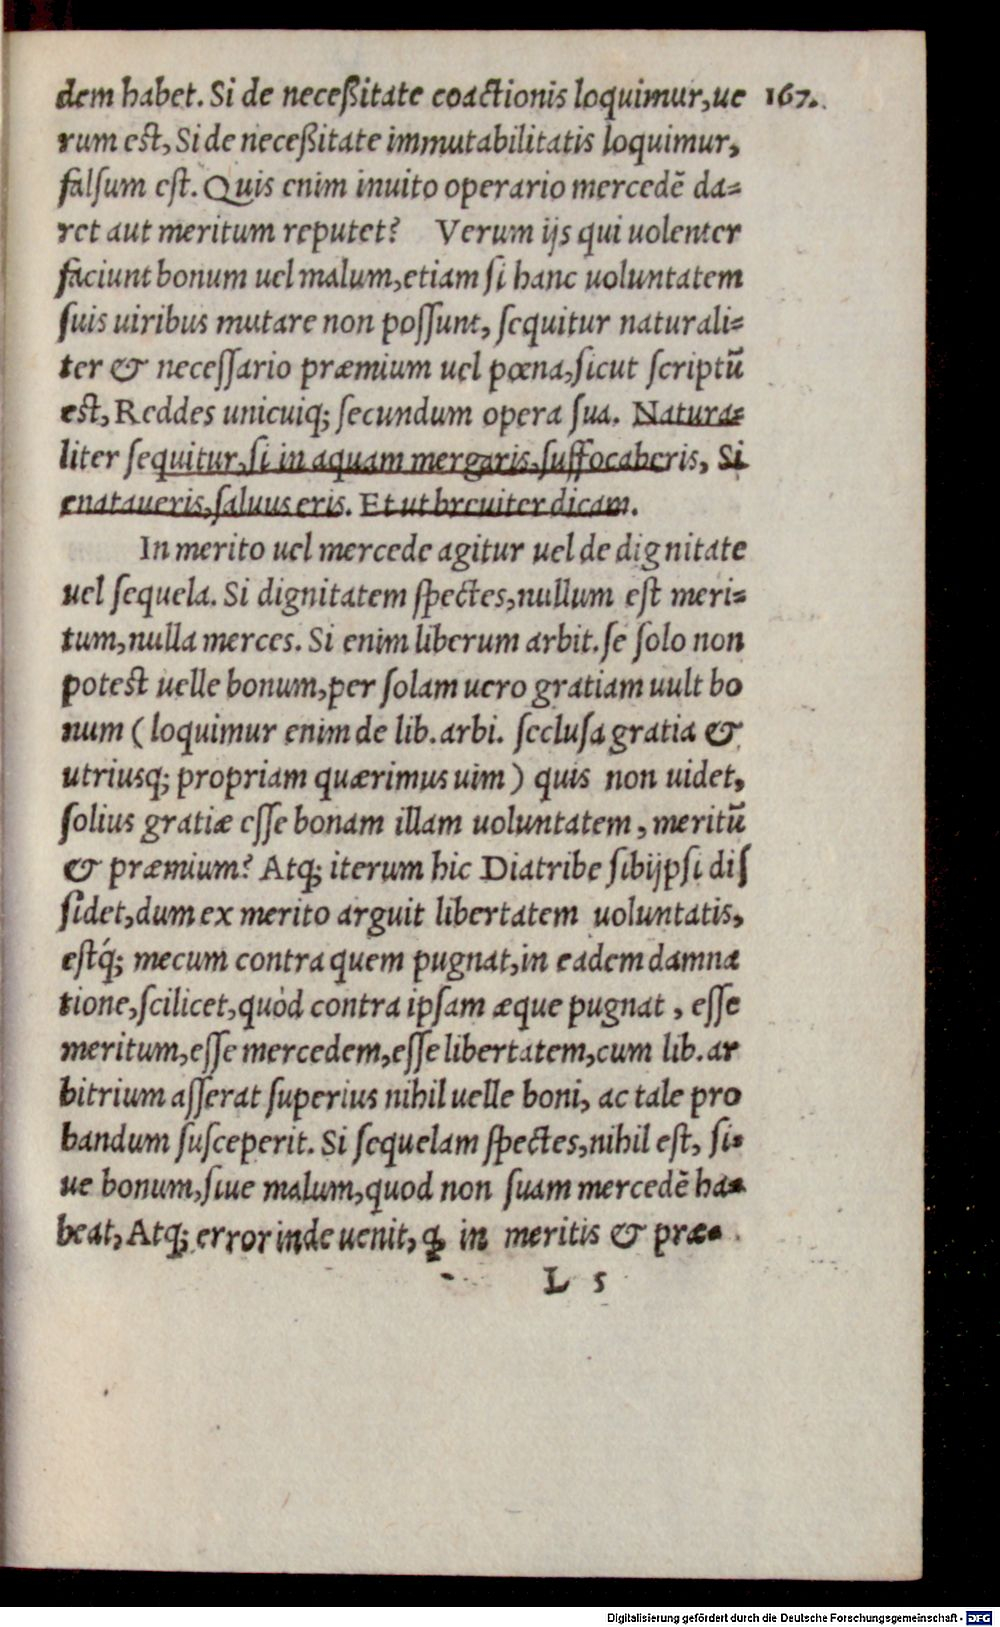 dem habet. Si de neceßitate coactionis loquimur, ue 167.
rum est, Si de neceßitate immutabilitatis loquimur,
falsum est. Quis enim inuito operario mercedē da=
ret aut meritum reputet? Verum ijs qui uolenter
faciunt bonum uel malum, etiam si hanc uoluntatem
suis uiribus mutare non possunt, sequitur naturali=
ter & necessario præmium uel pœna, sicut scriptū
est, Reddes unicuiq; secundum opera sua. Natura=
liter sequitur, si in aquam mergaris, suffocaberis, Si
enataueris, saluus eris. Et ut breuiter dicam.
In merito uel mercede agitur uel de dignitate
uel sequela. Si dignitatem spectes, nullum est meri=
tum, nulla merces. Si enim liberum arbit. se solo non
potest uelle bonum, per solam uero gratiam uult bo
num (loquimur enim de lib. arbi. seclusa gratia &
utriusq; propriam quærimus uim) quis non uidet,
solius gratiæ esse bonam illam uoluntatem, meritū
& præmium? Atq; iterum hic Diatribe sibijpsi dis
sidet, dum ex merito arguit libertatem uoluntatis,
estq́; mecum contra quem pugnat, in eadem damna
tione, scilicet, quòd contra ipsam æque pugnat, esse
meritum, esse mercedem, esse libertatem, cum lib. ar
bitrium asserat superius nihil uelle boni, ac tale pro
bandum susceperit. Si sequelam spectes, nihil est, si=
ue bonum, siue malum, quod non suam mercedē ha=
beat, Atq; error inde uenit, ꝙ in meritis & præ=
L 5
Digitalisierung gefördert durch die Deutsche Forschungsgemeinschaft - DFG